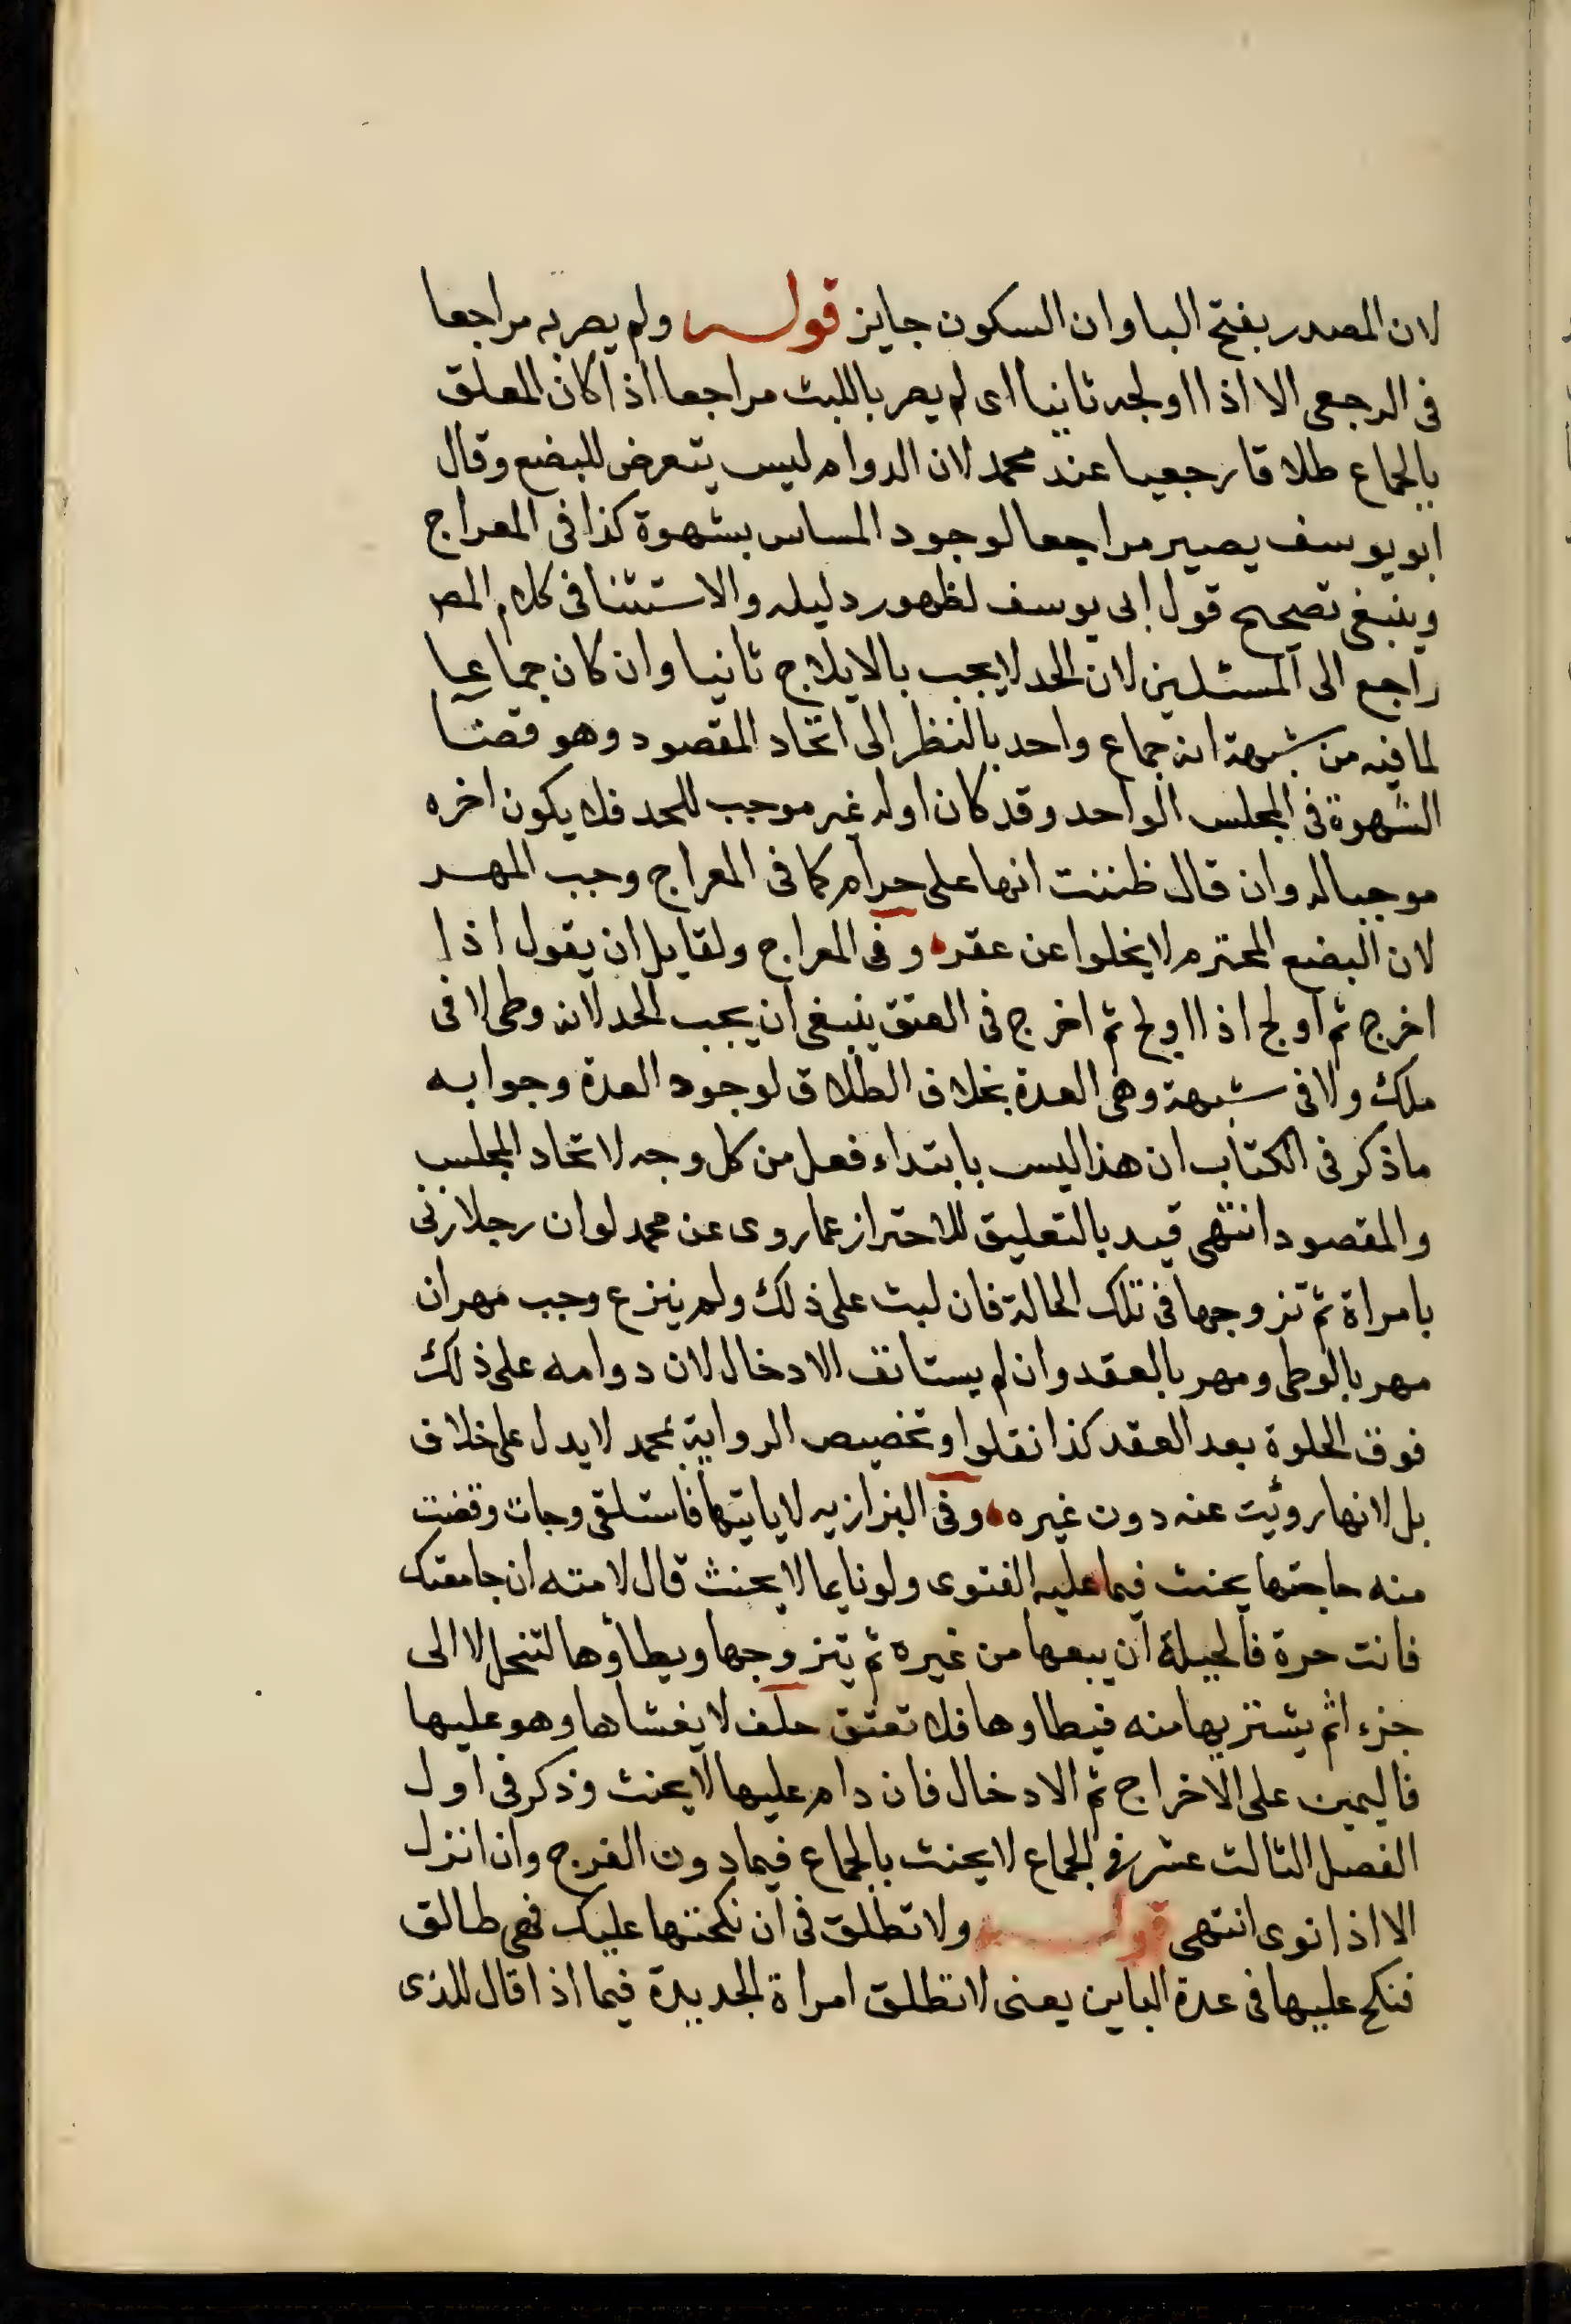 لان المصدر بفتح البا وان السكون جايز قوله ولم يصر به مراجعا
فى الرجعى الا اذا اولجه ثانيا اى لم يصر باللبث مراجعا اذا كان المعلق
بالجماع طلاقا رجعيا عند محمد لان الدوام ليس بتعرض للبضع وقال
ابو يوسف يصير مراجعا لوجود المساس بشهوة كذا فى المعراج
وينبغى تصحيح قول ابى يوسف لظهور دليله والاستثنا فى كلام المص
راجع الى المسئلتين لان الحد لا يجب بالايلاج ثانيا وان كان جماعيا
لما فيه من شبهة انه جماع واحد بالنظر الى اتحاد المقصود وهو قضا
الشهوة فى المجلس الواحد وقد كان اوله غير موجب للحد فلا يكون اخره
موجبا له وان قال ظننت انها على حرام كما فى المعراج وجب المهر
لان البضع المحترم لا يخلوا عن عقر وفى المعراج ولقايل ان يقول اذا
اخرج ثم اولج اذا اولج ثم اخرج فى العتق ينبغى ان يجب الحد لانه وطى لا فى
ملك ولا فى شبهة وهى العدة بخلاف الطلاق لوجود العدة وجوابه
ماذكر فى الكتاب ان هذا ليس بابتداء فعل من كل وجه لاتحاد المجلس
والمقصود انتهى قيد بالتعليق للاحتراز عما روى عن محمد لو ان رجلا زنى
بامراة ثم تزوجها فى تلك الحالة فان لبث على ذلك ولم ينزع وجب مهران
مهر بالوطى ومهر بالعقد وان لم يستانف الادخال لان دوامه على ذلك
فوق الخلوة بعد العقد كذا نقلوا وتخصيص الرواية بمحمد لا يدل على خلاف
بل لانها رؤيت عنه دون غيره وفى البزازيه لا ياتيها فاستلقى وجات وقضت
منه حاجتها يحنث فيما عليه الفتوى ولو نايما لا يحنث قال لامته ان جامعتك
فانت حرة فالحيلة ان يبيعها من غيره ثم يتزوجها ويطاؤها لتنحل لا الى
جزء اثم يشتريها منه فيطاوها فلا تعتق حلف لا يغشاها وهو عليها
فاليمين على الاخراج ثم الادخال فان دام عليها لا يحنث وذكر فى اول
الفصل الثالث عشر فى الجماع لا يحنث بالجماع فيما دون الفرج وان انزل
الا اذا نوى انتهى قوله ولا تطلق فى ان نكحتها عليك فهى طالق
فنكح عليها فى عدة الباين يعنى لا تطلق امراة الجديدة فيما اذا قال للذى